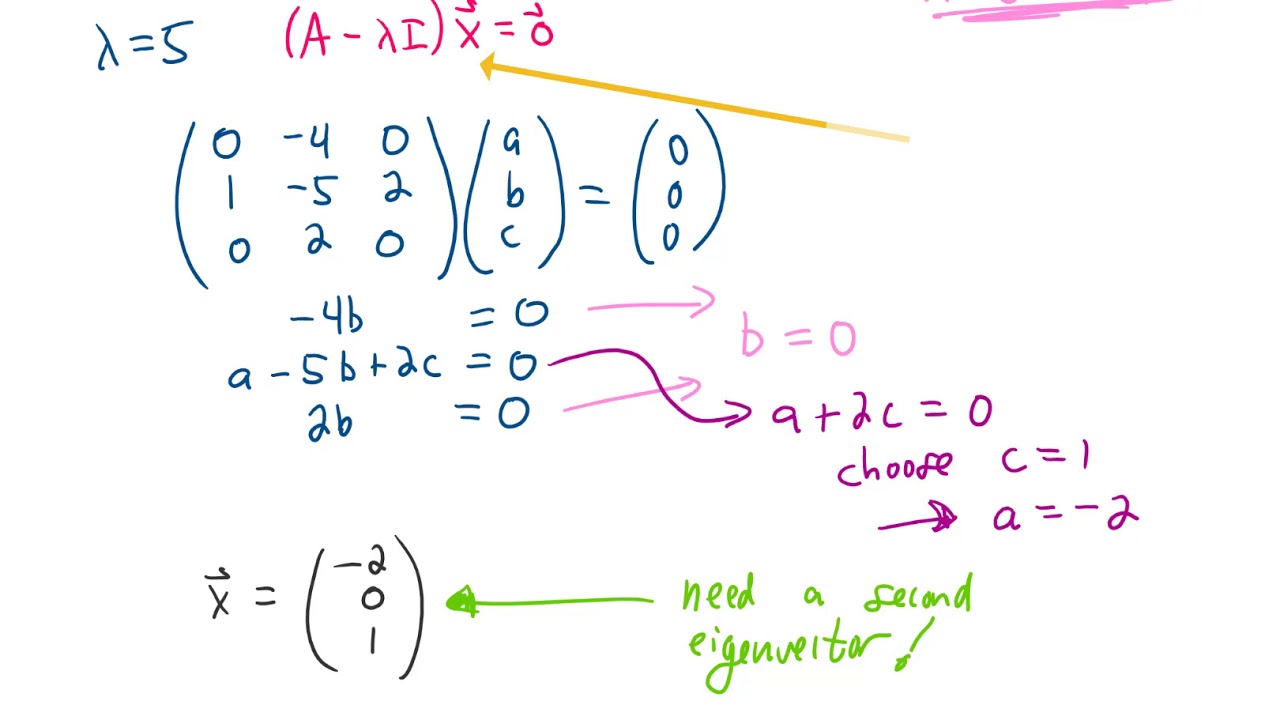 λ = 5 (A - λI) x⃗ = 0⃗
( 0 -4 0 ) ( a ) ( 0 )
( 1 -5 2 ) ( b ) = ( 0 )
( 0 2 0 ) ( c ) ( 0 )
-4b = 0
b = 0
a - 5b + 2c = 0
2b = 0
a + 2c = 0
choose c = 1
→ a = -2
x⃗ = ( -2 0 1 )
need a second
eigenvector!